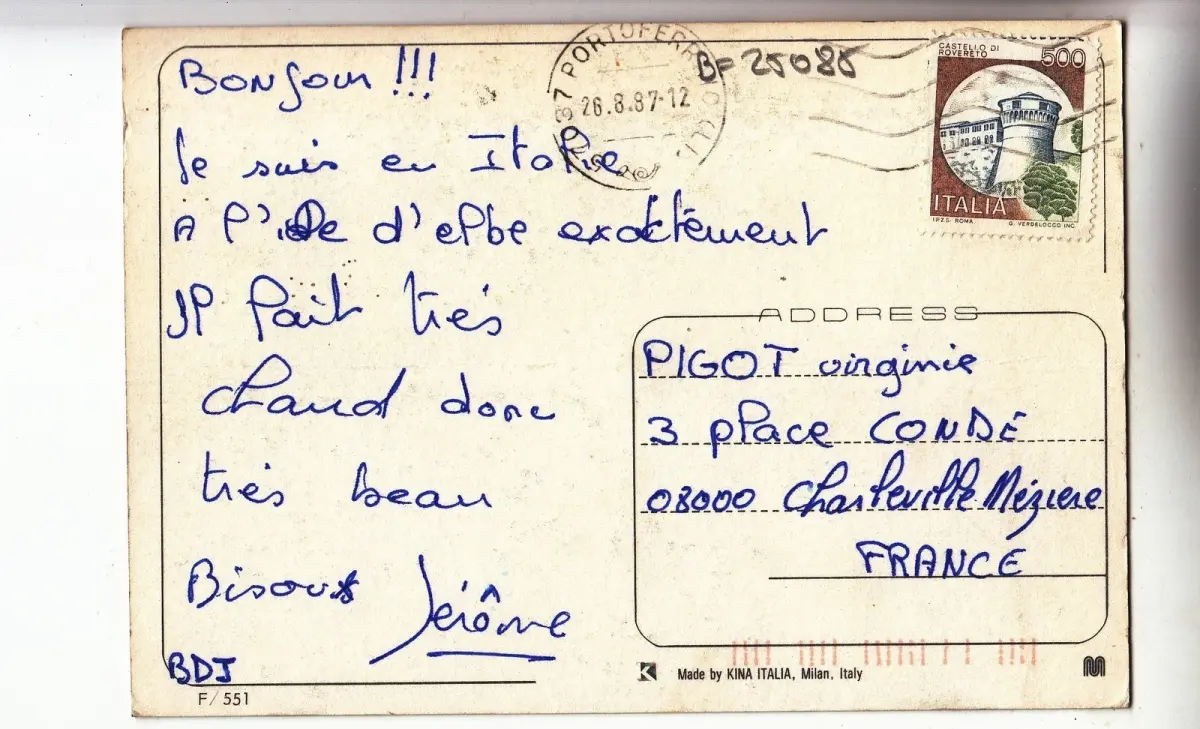 Bonjour !!!
Je suis en Italie
A l'île d'elbe exactement
Il fait très
chaud donc
très beau
Bisous Jérôme
BDJ
F/ 551
PORTOFERR
26.8.87-12
BF 25085
CASTELLO DI
ROVERETO
500
ITALIA
I.P.Z.S. ROMA G. VERDELOCCO INC.
ADDRESS
PIGOT virginie
3 place CONDÉ
08000 Charleville Méziere
FRANCE
K Made by KINA ITALIA, Milan, Italy